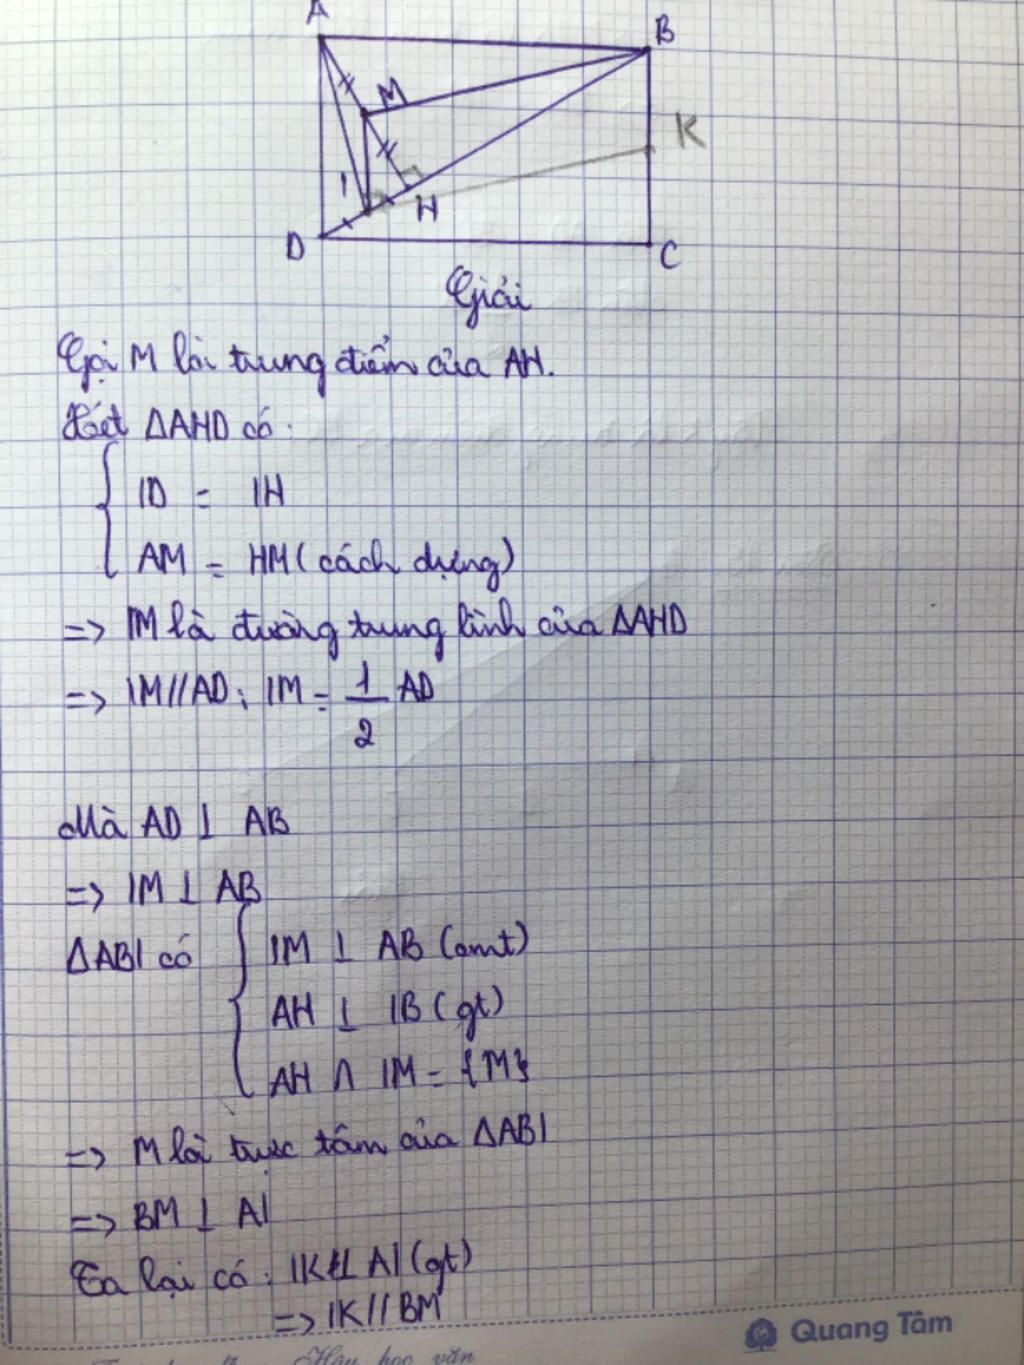 A
B
M
K
I
H
D
C
Giải
Gọi M là trung điểm của AH.
Xét ΔAHD có:
ID = IH
AM = HM (cách dựng)
=> IM là đường trung bình của ΔAHD
=> IM//AD; IM = 1/2 AD
Mà AD ⊥ AB
=> IM ⊥ AB
ΔABI có
IM ⊥ AB (cmt)
AH ⊥ IB (gt)
AH ∩ IM = {M}
=> M là trực tâm của ΔABI
=> BM ⊥ AI
Ta lại có: IK ⊥ AI (gt)
=> IK // BM
Quang Tâm
học văn